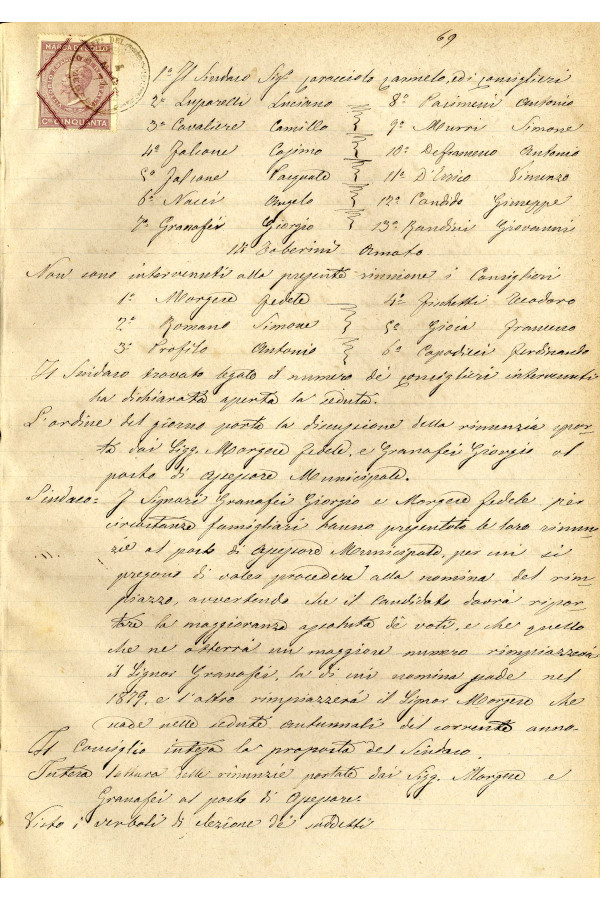 69
MARCA DA BOLLO
Cmi CINQUANTA
1° Il Sindaco Sigr Caracciolo Carmelo, ed i Consiglieri
2° Luparelli Luciano 8° Pasimeni Antonio
3° Cavaliere Camillo 9° Murri Simone
4° Falcone Cosimo 10° Defrancesco Antonio
5° Falcone Pasquale 11° D'Errico Vincenzo
6° Nacci Angelo 12° Candido Giuseppe
7° Granafei Giorgio 13° Bandini Giovanni
14 Zaberini Amato
Non sono intervenuti alla presente riunione i Consiglieri
1° Morgese Fedele 4° Fischetti Teodoro
2° Romano Simone 5° Gioia Francesco
3° Profilo Antonio 6° Capodieci Ferdinando
Il Sindaco trovato legale il numero dei Consiglieri intervenuti
ha dichiarata aperta la seduta.
L'ordine del giorno porta la discussione della rinunzia spor-
ta dai Sigg. Morgese Fedele, e Granafei Giorgio al
posto di Assessore Municipale.
Sindaco= I Signori Granafei Giorgio e Morgese Fedele per
circostanze famigliari hanno presentato le loro rinun-
zie al posto di Assessore Municipale, per cui si
pregano di voler procedere alla nomina del rim-
piazzo, avvertendo che il candidato dovrà ripor-
tare la maggioranza assoluta dè voti, e che quello
che ne otterrà un maggiore numero rimpiazzerà
il Signor Granafei, la di cui nomina scade nel
1879, e l'altro rimpiazzerà il Signor Morgese che
scade nelle sedute autunnali del corrente anno.
Il Consiglio intesa la proposta del Sindaco
Intesa lettura delle rinunzie portate dai Sigg. Morgese e
Granafei al posto di Assessore.
Visto i verbali di elezione dè suddetti